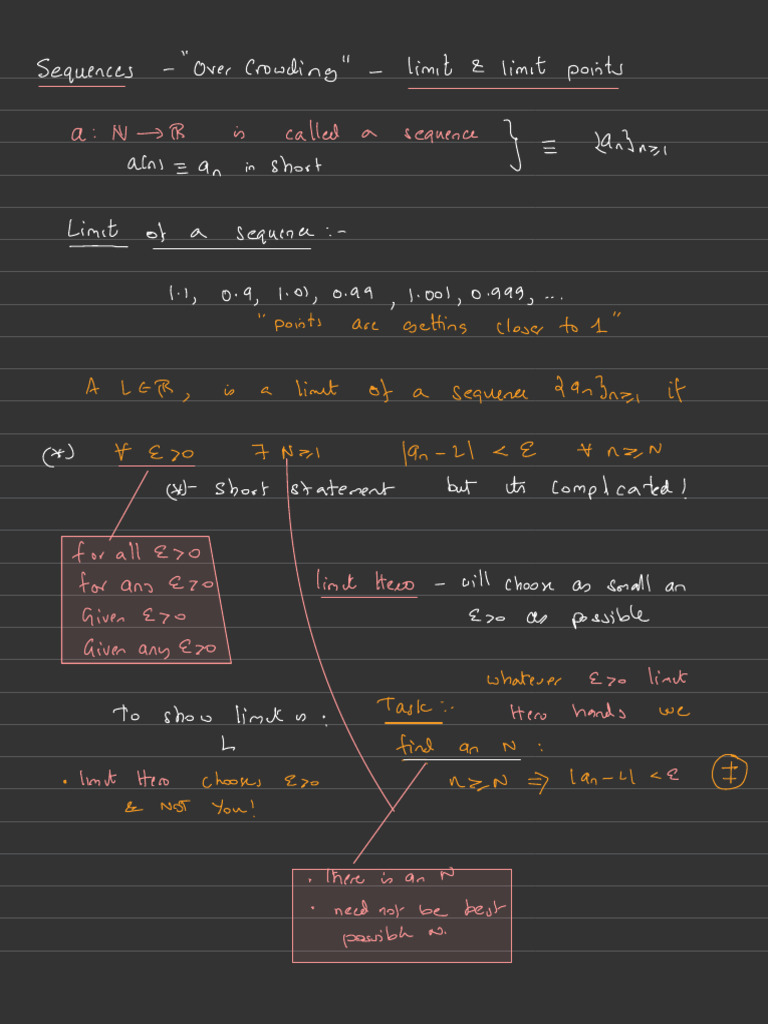 Sequences - "Over Crowding" - limit & limit points
a : ℕ → ℝ is called a sequence
a(n) ≡ aₙ in short
} ≡ {aₙ}ₙ≥₁
Limit of a sequence :-
1.1, 0.9, 1.01, 0.99, 1.001, 0.999, ...
"points are getting closer to 1"
A L∈ℝ, is a limit of a sequence {aₙ}ₙ≥₁ if
(*) ∀ ε>0 ∃ N≥1 |aₙ-L| < ε ∀ n≥N
(*)- short statement but its complicated!
for all ε>0
for any ε>0
Given ε>0
Given any ε>0
limit Hero - will choose as small an
ε>0 as possible
To show limit is :
L
• limit Hero chooses ε>0
& NOT You!
Task:-
whatever ε>0 limit
Hero hands we
find an N :
n≥N ⇒ |aₙ-L| < ε ‡
• There is an N
• need not be best
possible N.